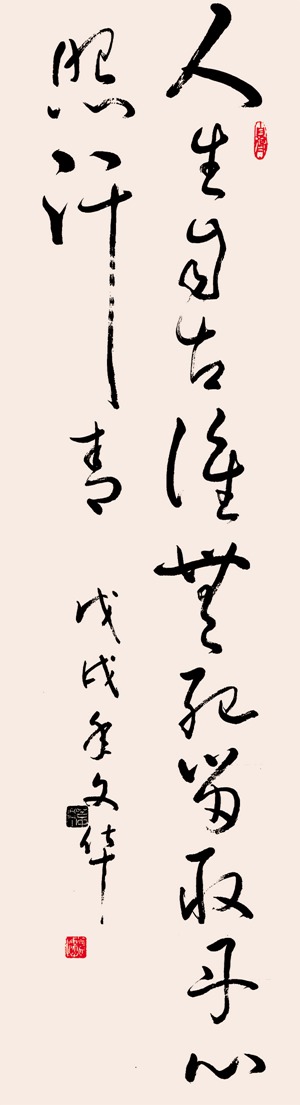 人生自古誰無死留取丹心
照汗青
戊戌年文华